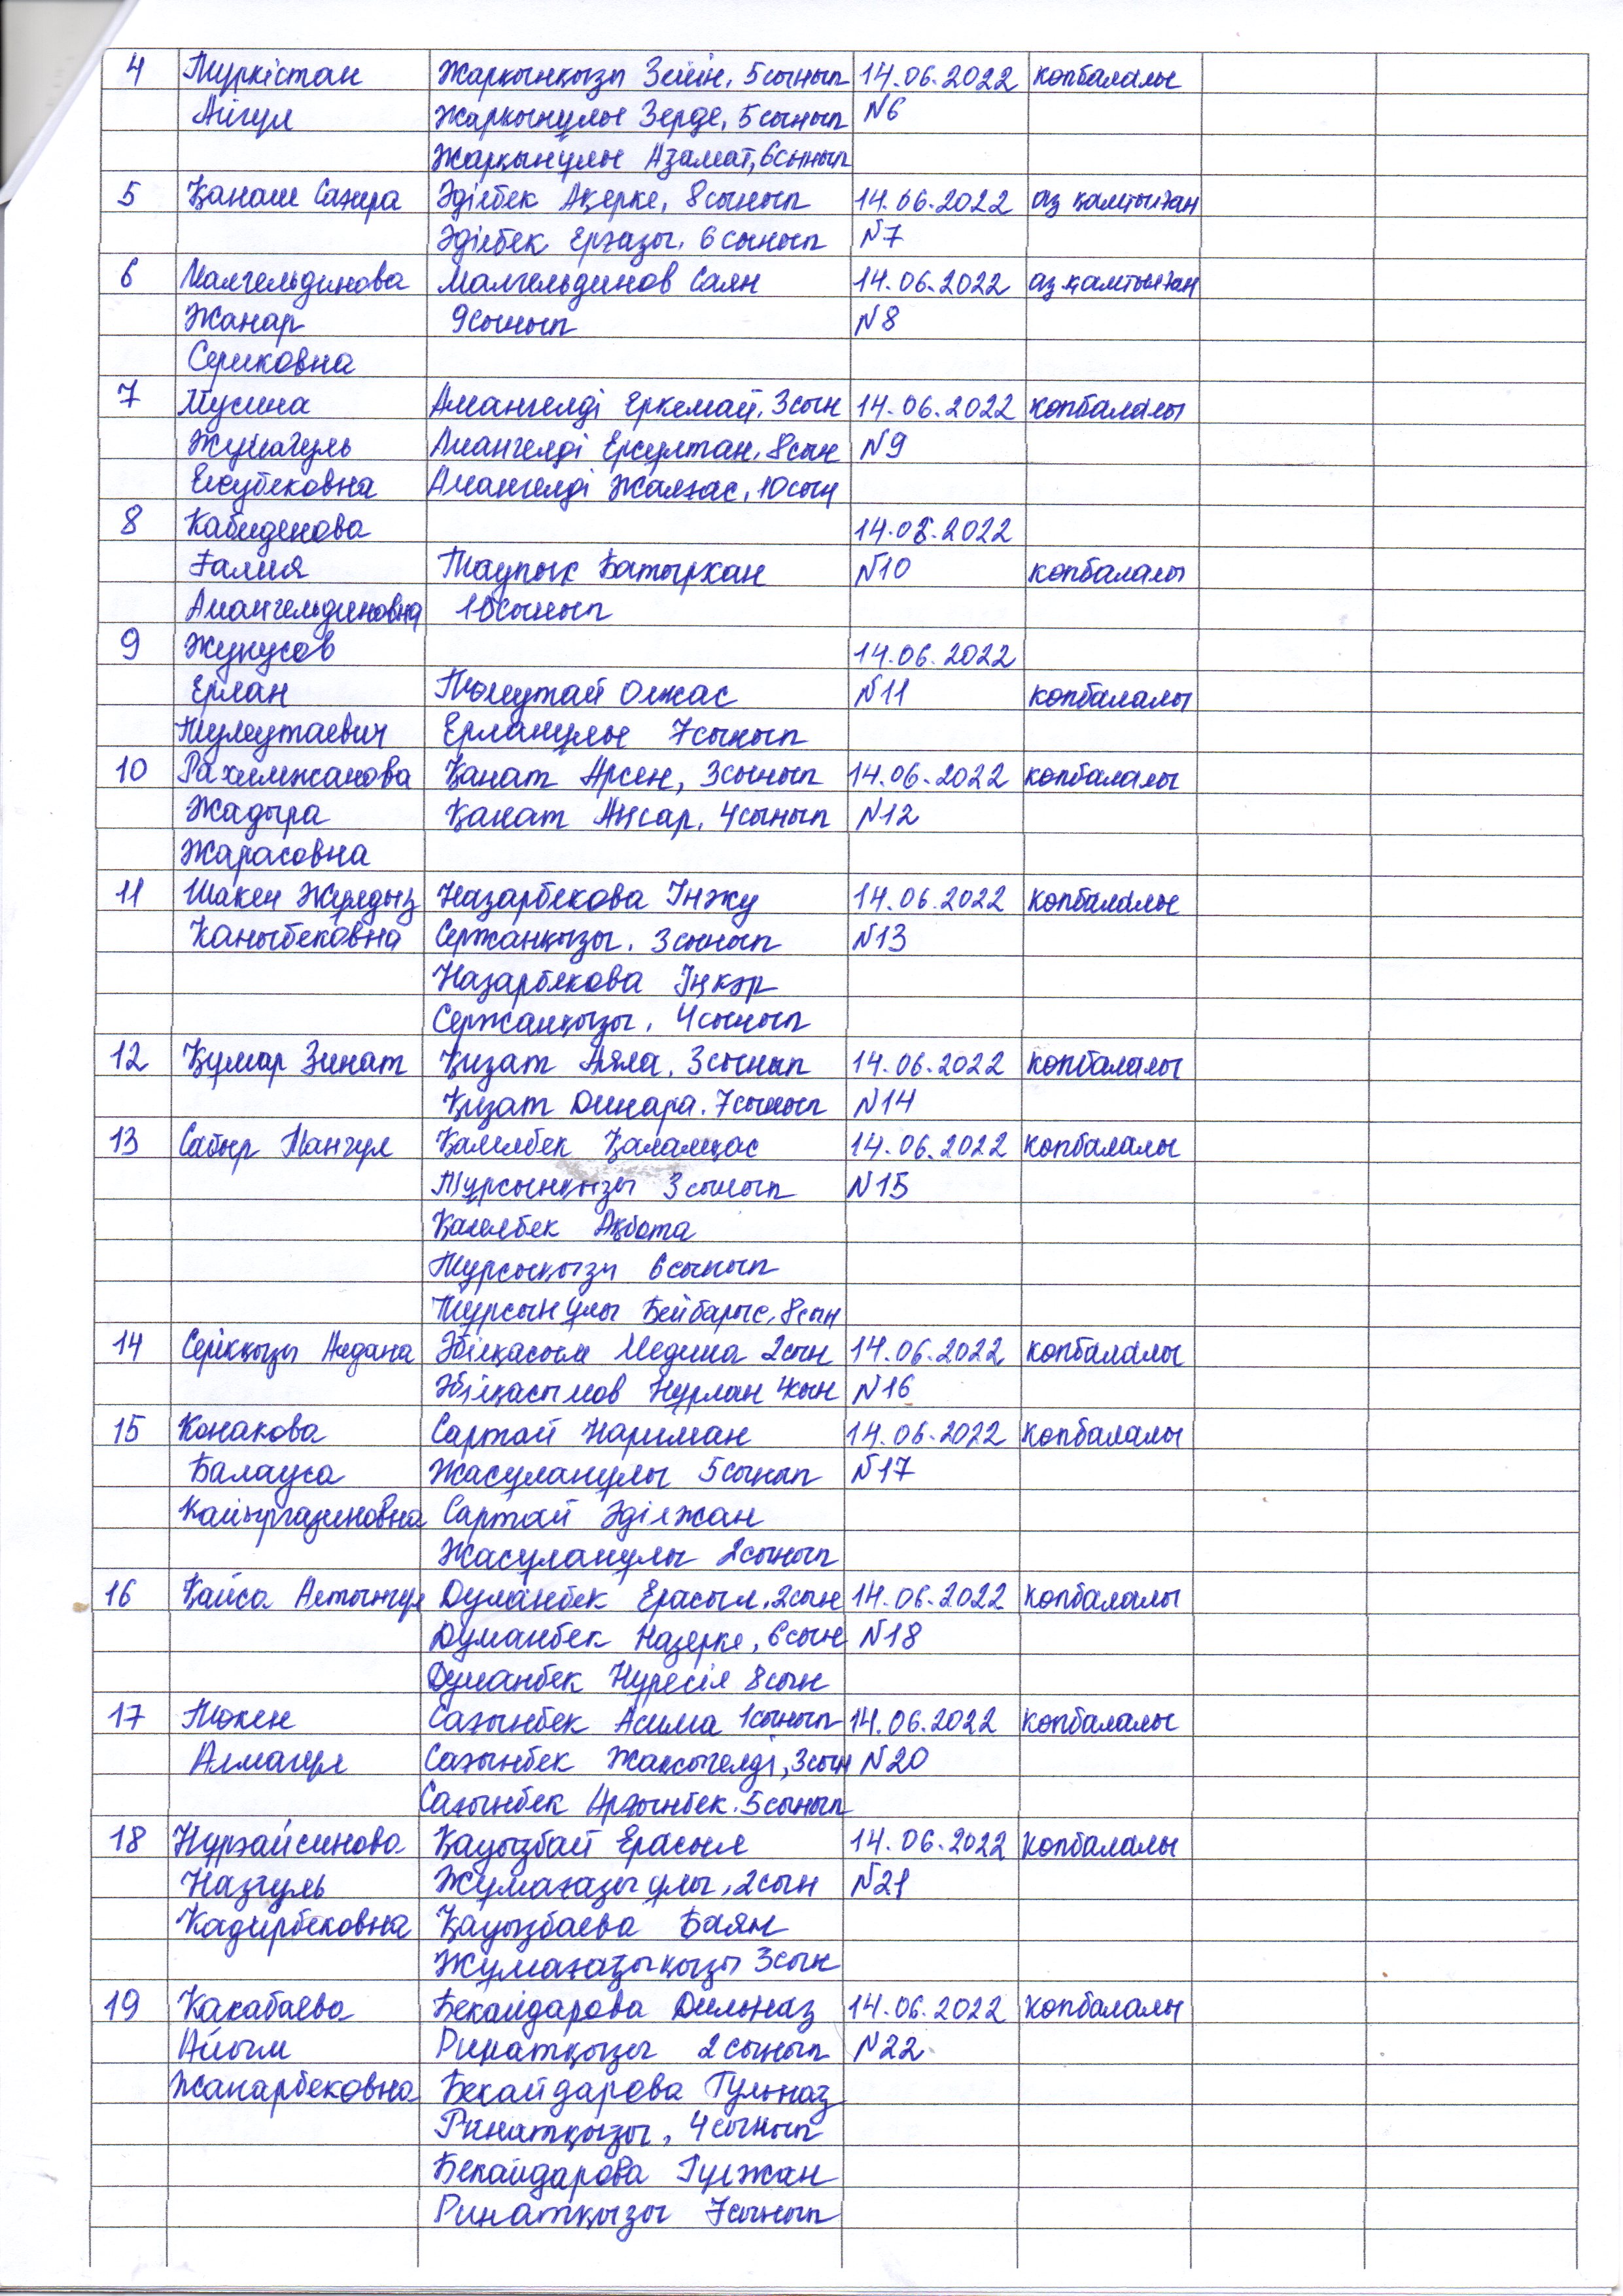 4 Түркістан Жарқынқызы Зейін, 5сынып 14.06.2022 көпбалалы
Айгүл Жарқынұлы Зерде, 5сынып №6
Жарқынұлы Азамат, 6сынып
5 Қанаш Сағира Әділбек Ақерке, 8сынып 14.06.2022 аз қамтылған
Әділбек Ерғазы, 6сынып №7
6 Малгельдинова Малгельдинов Саян 14.06.2022 аз қамтылған
Жанар 9сынып №8
Сериковна
7 Мусина Амангелді Еркемай, 3сын 14.06.2022 көпбалалы
Жумагуль Амангелді Ерсултан, 8сын №9
Амангелді Жалғас, 10сын
8 Кабиденова 14.06.2022
Ғалия Таупык Батырхан №10 көпбалалы
Амангельдиновна 10сынып
9 Жунусов 14.06.2022
Ерлан Төлеутай Олжас №11 көпбалалы
Тулеутаевич Ерланұлы 7сынып
10 Рахимжанова Қанат Арсен, 3сынып 14.06.2022 көпбалалы
Жадыра Қанат Аңсар, 4сынып №12
Жарасовна
11 Шакен Жұлдыз Назарбекова Інжу 14.06.2022 көпбалалы
Каныбековна Сержанқызы, 3сынып №13
Назарбекова Іңкәр
Сержанқызы, 4сынып
12 Құмар Зинат Қизат Аяла, 3сынып 14.06.2022 көпбалалы
Қизат Динара. 7сынып №14
13 Сабыр Манғул Қамелбек Қаламқас 14.06.2022 көпбалалы
Тұрсынқызы 3сынып №15
Қамелбек Ақбота
Турсынқызы 6сынып
Тұрсынұлы Бейбарыс, 8сын
14 Серікқызы Алдана Әбілқасым Медина 2сын 14.06.2022 көпбалалы
Әбілқасымов Нұрлан 4сын №16
15 Конакова Сартай Нариман 14.06.2022 көпбалалы
Балауса Жасуланұлы 5сынып №17
Кайыргазиновна Сартай Әділжан
Жасуланұлы 2сынып
16 Қайса Алтынгүл Думанбек Ерасыл, 2сын 14.06.2022 көпбалалы
Думанбек Назерке, 6сын №18
Думанбек Нуресіл 8сын
17 Төкен Сағынбек Асима 1сынып 14.06.2022 көпбалалы
Алмагүл Сағынбек Жаксыгелді, 3сын №20
Сағынбек Арғынбек. 5сынып
18 Нурғайсинова Қауызбай Ерасыл 14.06.2022 көпбалалы
Назгуль Жұмағазыұлы, 2сын №21
Кадирбековна Қауызбаева Баян
Жұмағазықызы 3сын
19 Какабаева Бекайдарова Дильназ 14.06.2022 көпбалалы
Айым Ринатқызы 2сынып №22
Жанарбековна Бекайдарова Гульназ
Ринатқызы, 4сынып
Бекайдарова Гүлжан
Ринатқызы 7сынып